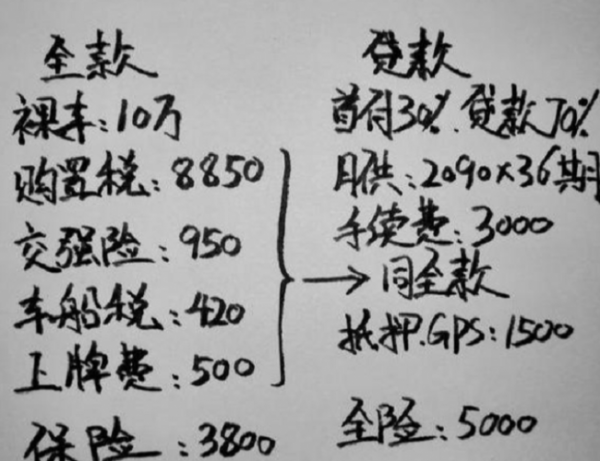 全款
裸车:10万
购置税:8850
交强险:950
车船税:420
上牌费:500
保险:3800
贷款
首付30%.贷款70%
月供:2090×36期
手续费:3000
→同全款
抵押.GPS:1500
全险:5000